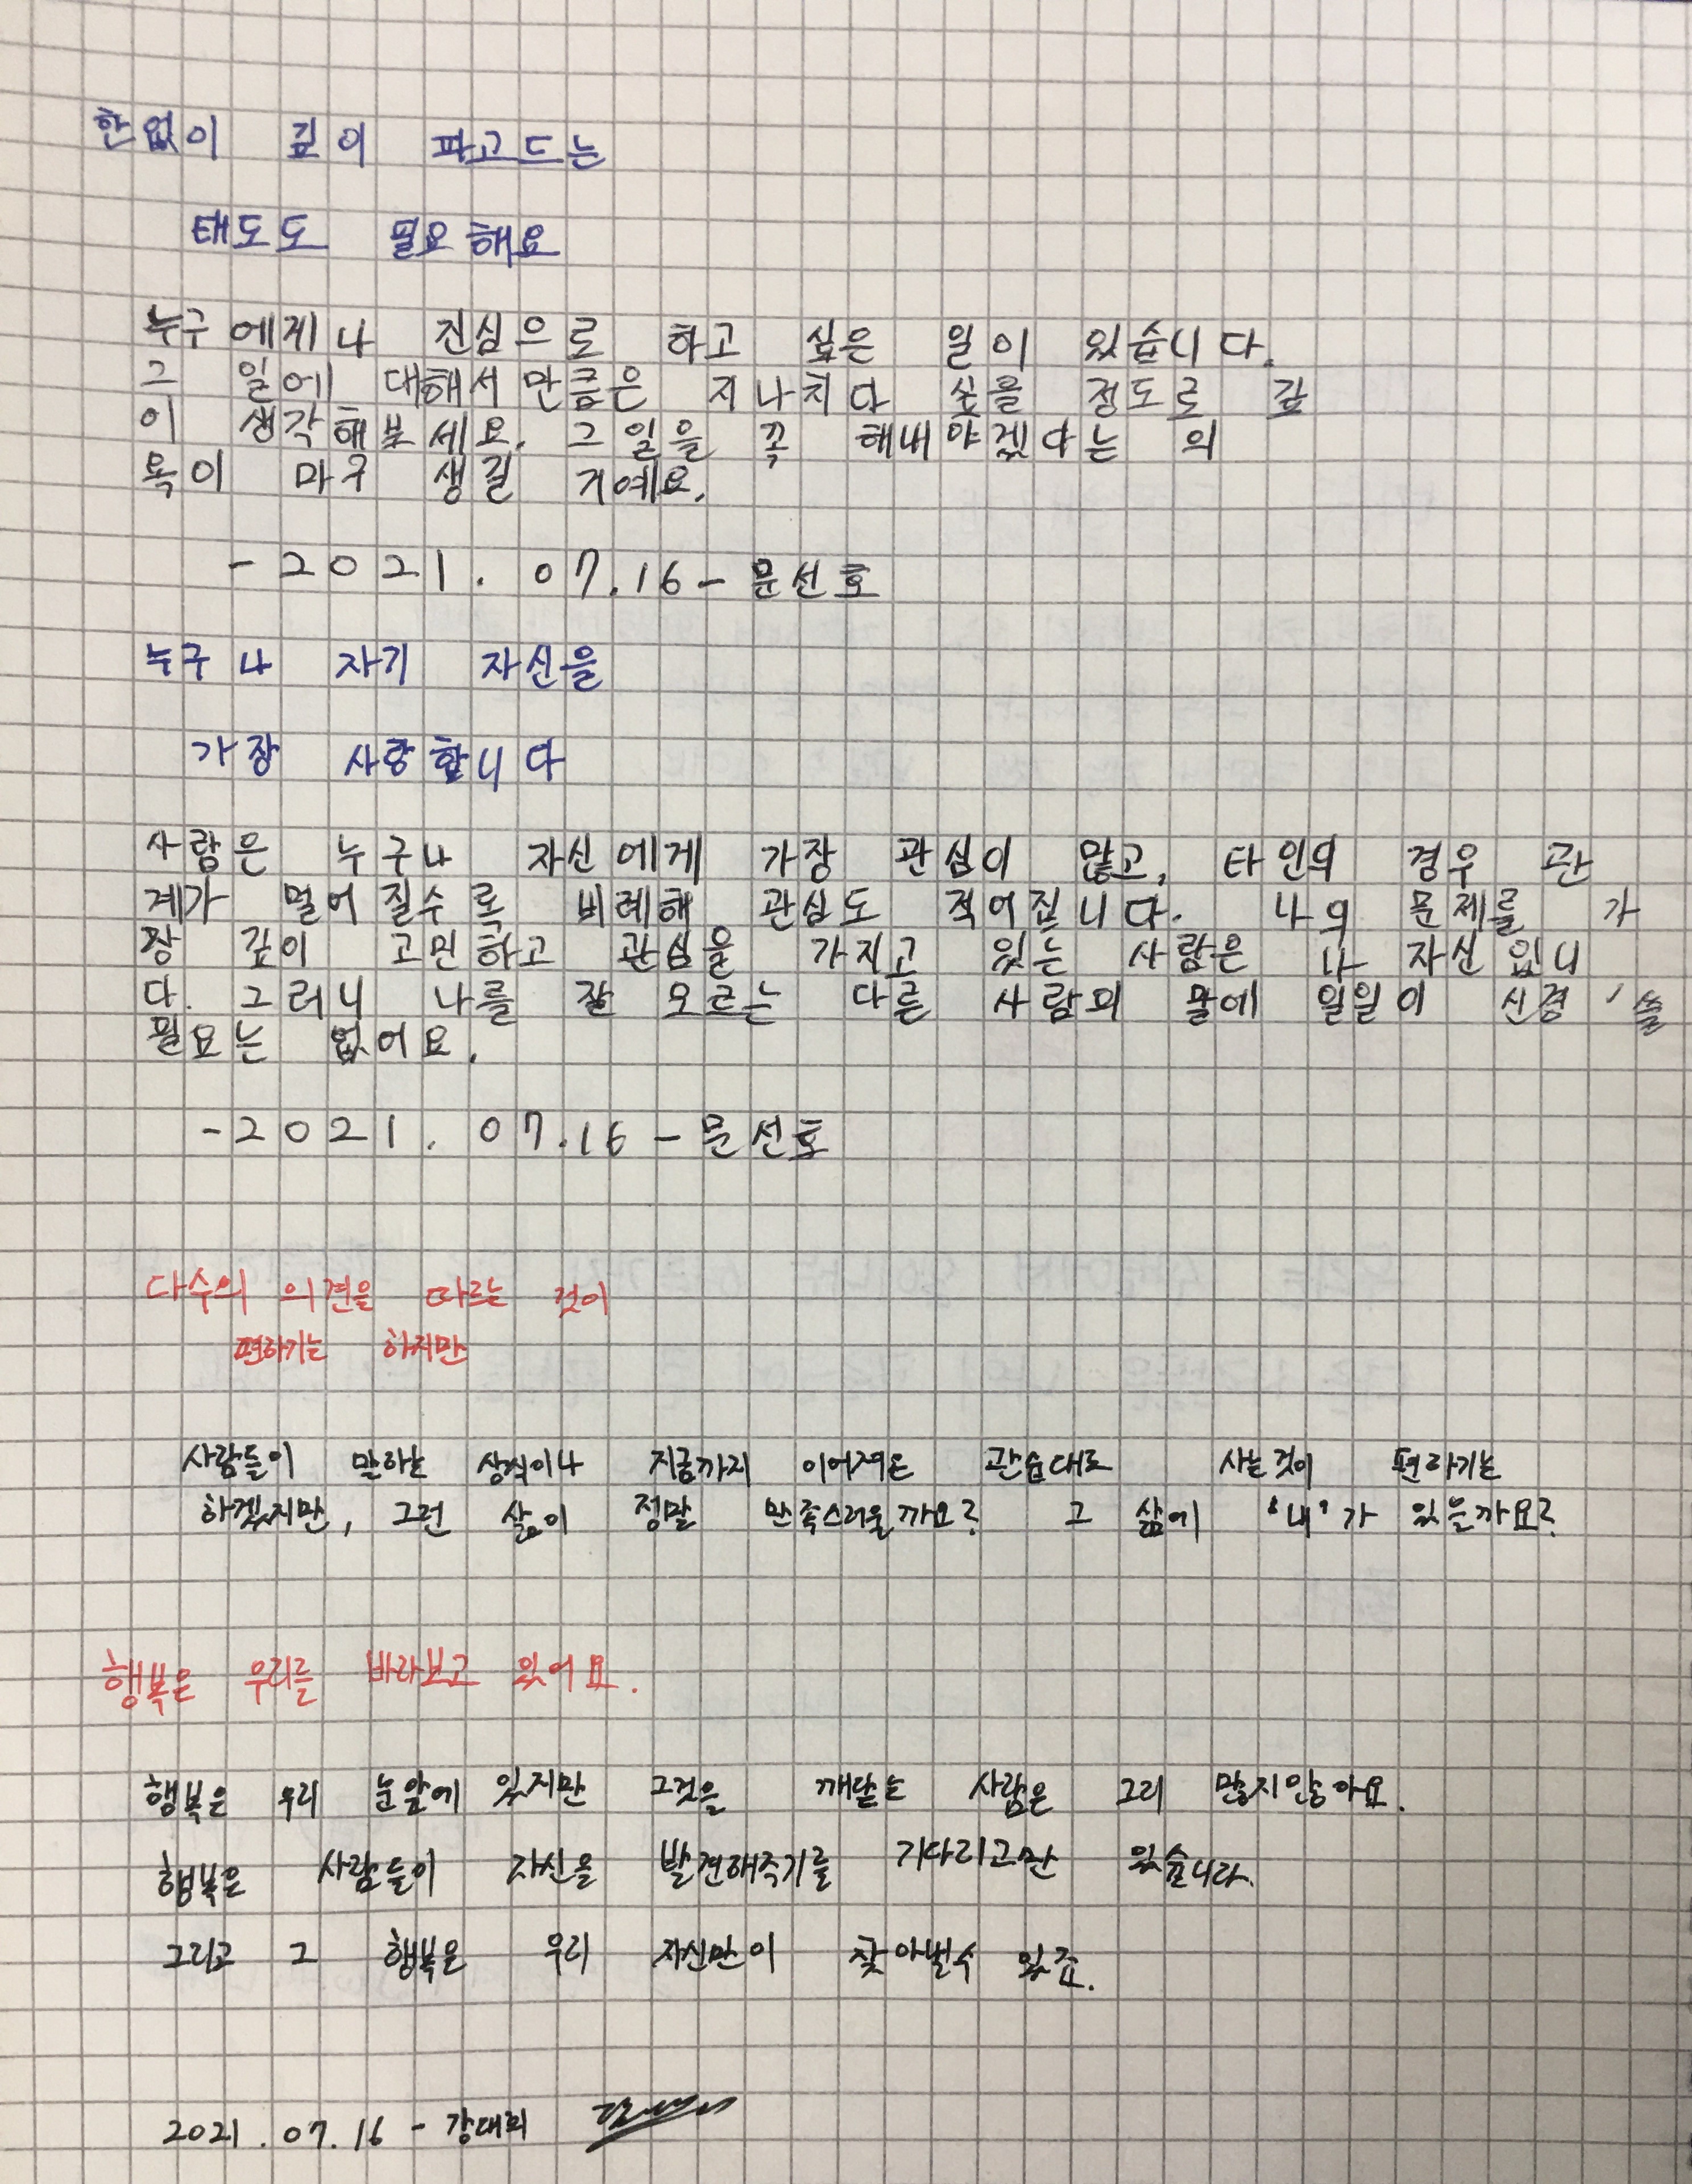 한없이 깊이 파고드는
태도도 필요해요
누구에게나 진심으로 하고 싶은 일이 있습니다.
그 일에 대해서만큼은 지나치다 싶을 정도로 깊
이 생각해보세요. 그 일을 꼭 해내야겠다는 의
욕이 마구 생길 거예요.
-2021.07.16- 문선호
누구나 자기 자신을
가장 사랑합니다
사람은 누구나 자신에게 가장 관심이 많고, 타인의 경우 관
계가 멀어질수록 비례해 관심도 적어집니다. 나의 문제를 가
장 깊이 고민하고 관심을 가지고 있는 사람은 나 자신입니
다. 그러니 나를 잘 모르는 다른 사람의 말에 일일이 신경 쓸
필요는 없어요.
-2021.07.16- 문선호
다수의 의견을 따르는 것이
편하기는 하지만
사람들이 말하는 상식이나 지금까지 이어져온 관습대로 사는것이 편하기는
하겠지만, 그런 삶이 정말 만족스러울까요? 그 삶에 '내'가 있을까요?
행복은 우리를 바라보고 있어요.
행복은 우리 눈앞에 있지만 그것을 깨닫는 사람은 그리 많지않아요.
행복은 사람들이 자신을 발견해주기를 기다리고만 있습니다.
그리고 그 행복은 우리 자신만이 찾아낼수 있죠.
2021.07.16 - 강대희